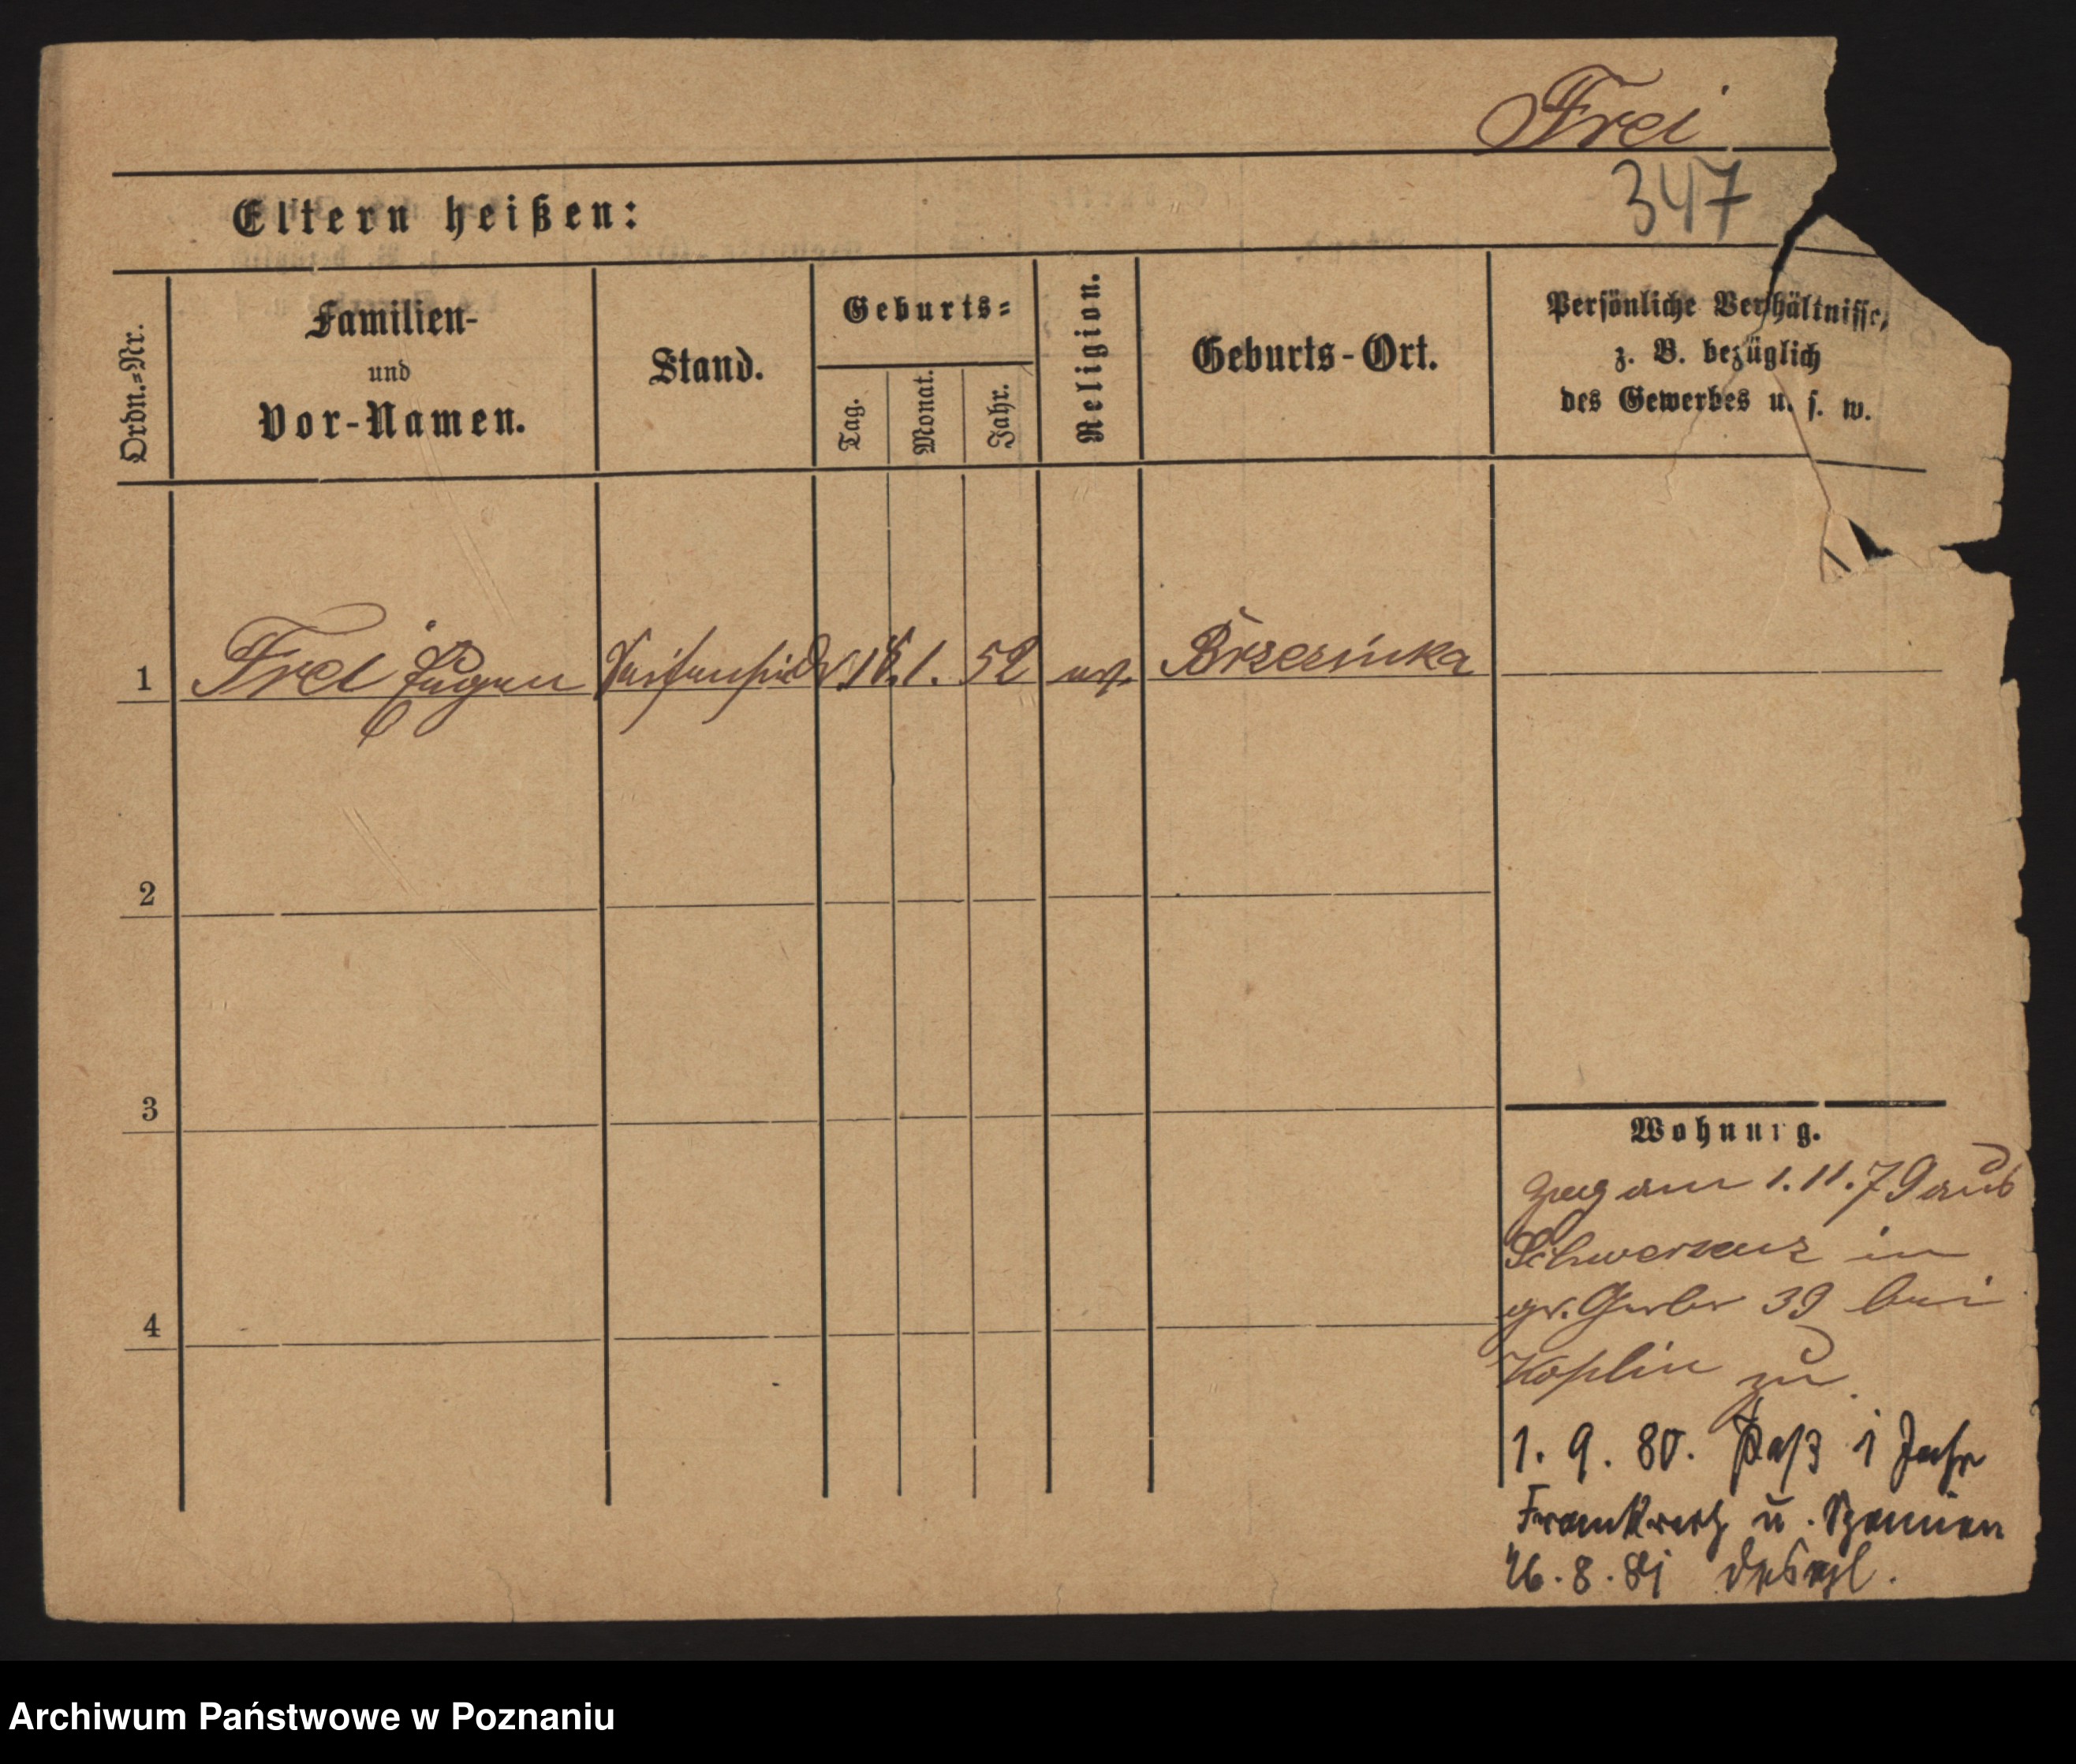 Frei
347
Eltern heißen:
Ordn.=Nr.
Familien-
und
Vor-Namen.
Stand.
Geburts=
Tag.
Monat.
Jahr.
Religion.
Geburts-Ort.
Persönliche Verhältnisse,
z. B. bezüglich
des Gewerbes u. s. w.
1 Frei Eugen 18. 1. 52 ev. Brzezinka
2
3
4
Wohnung.
Zug am 1. 11. 79 aus
Schwersenz in
gr. Gerber 39 bei
Koplin zu.
1. 9. 80. Paß 1 Jahr
Frankreich u. Spanien
26. 8. 81 desgl.
Archiwum Państwowe w Poznaniu